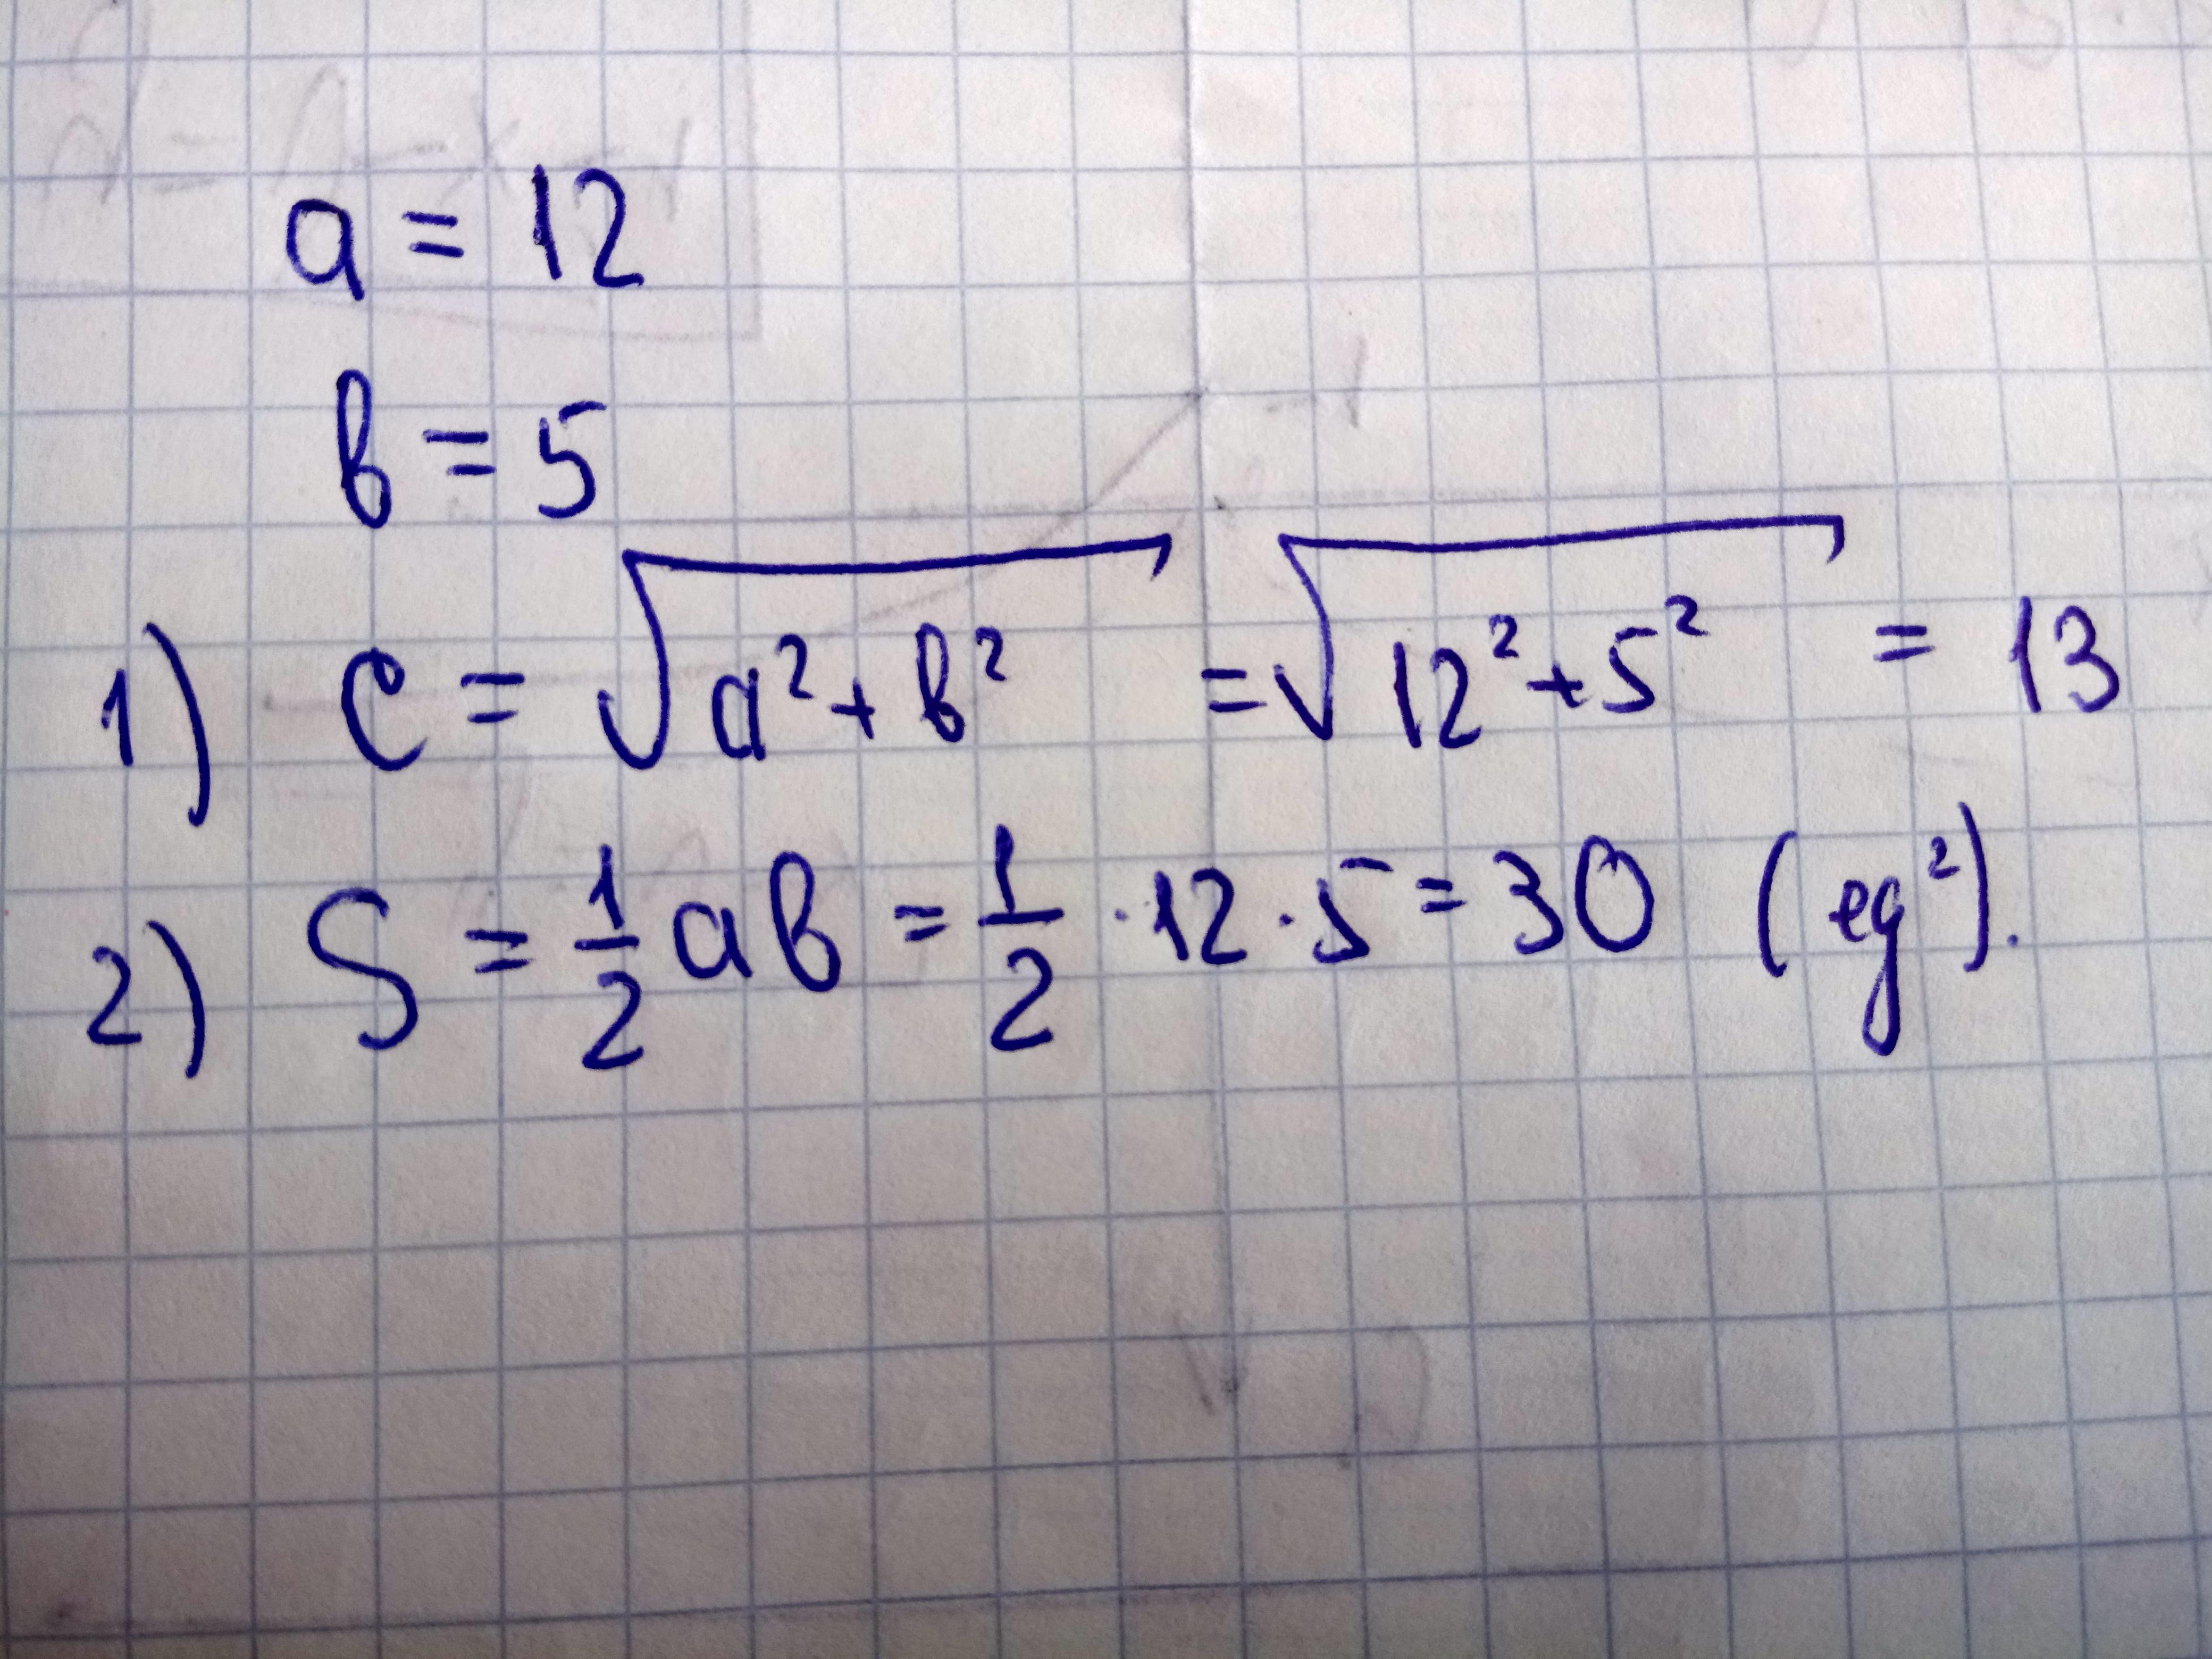 a = 12
в = 5
1) c = √(a² + в²) = √(12² + 5²) = 13
2) S = 1/2 aв = 1/2 · 12 · 5 = 30 (ед²).